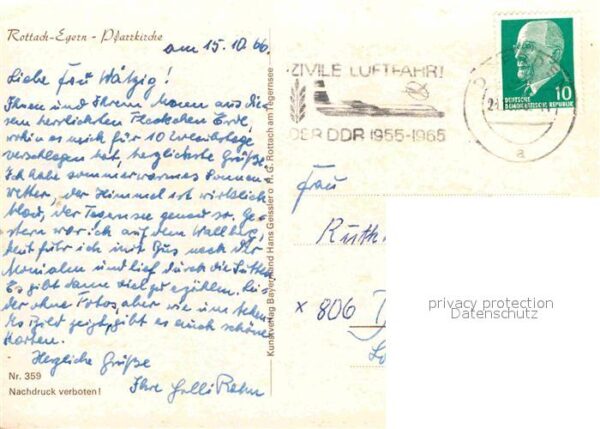 Rottach-Egern - Pfarrkirche
am 15.10.66
Liebe Frau Wätzig!
Ihnen und Ihrem Mann aus die-
sem herrlichen Fleckchen Erde,
wohin es mich für 10 Urlaubstage
verschlagen hat, herzlichste Grüße.
Ich habe sommerwarmes Sonnen-
wetter, der Himmel ist wirklich
blau, der Tegernsee genau so. Ge-
stern war ich auf dem Wallberg,
heut fuhr ich mit Bus nach der
und lief durch die
Es gibt dann viel zu erzählen. Lei-
der ohne Fotos, aber wie umstehen-
des Bild zeigt, gibt es auch schöne
Karten.
Herzliche Grüße
Ihre
Nr. 359
Nachdruck verboten!
Kunstverlag Bayernland Hans Geissler o. H. G. Rottach am Tegernsee
ZIVILE LUFTFAHRT
DER DDR 1955-1965
DEUTSCHE
DEMOKRATISCHE REPUBLIK
10
a
Frau
Ruth
x 806
privacy protection
Datenschutz